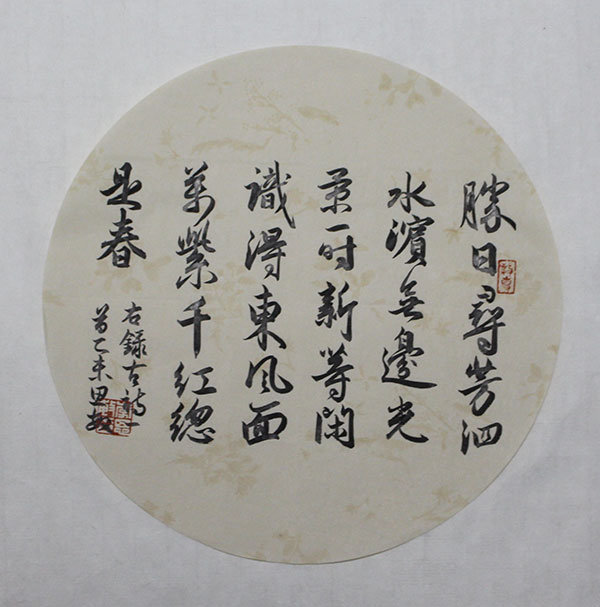 勝日尋芳泗
水濱無邊光
景一時新等閑
識得東風面
萬紫千紅總
是春
右錄古詩一
首乙未